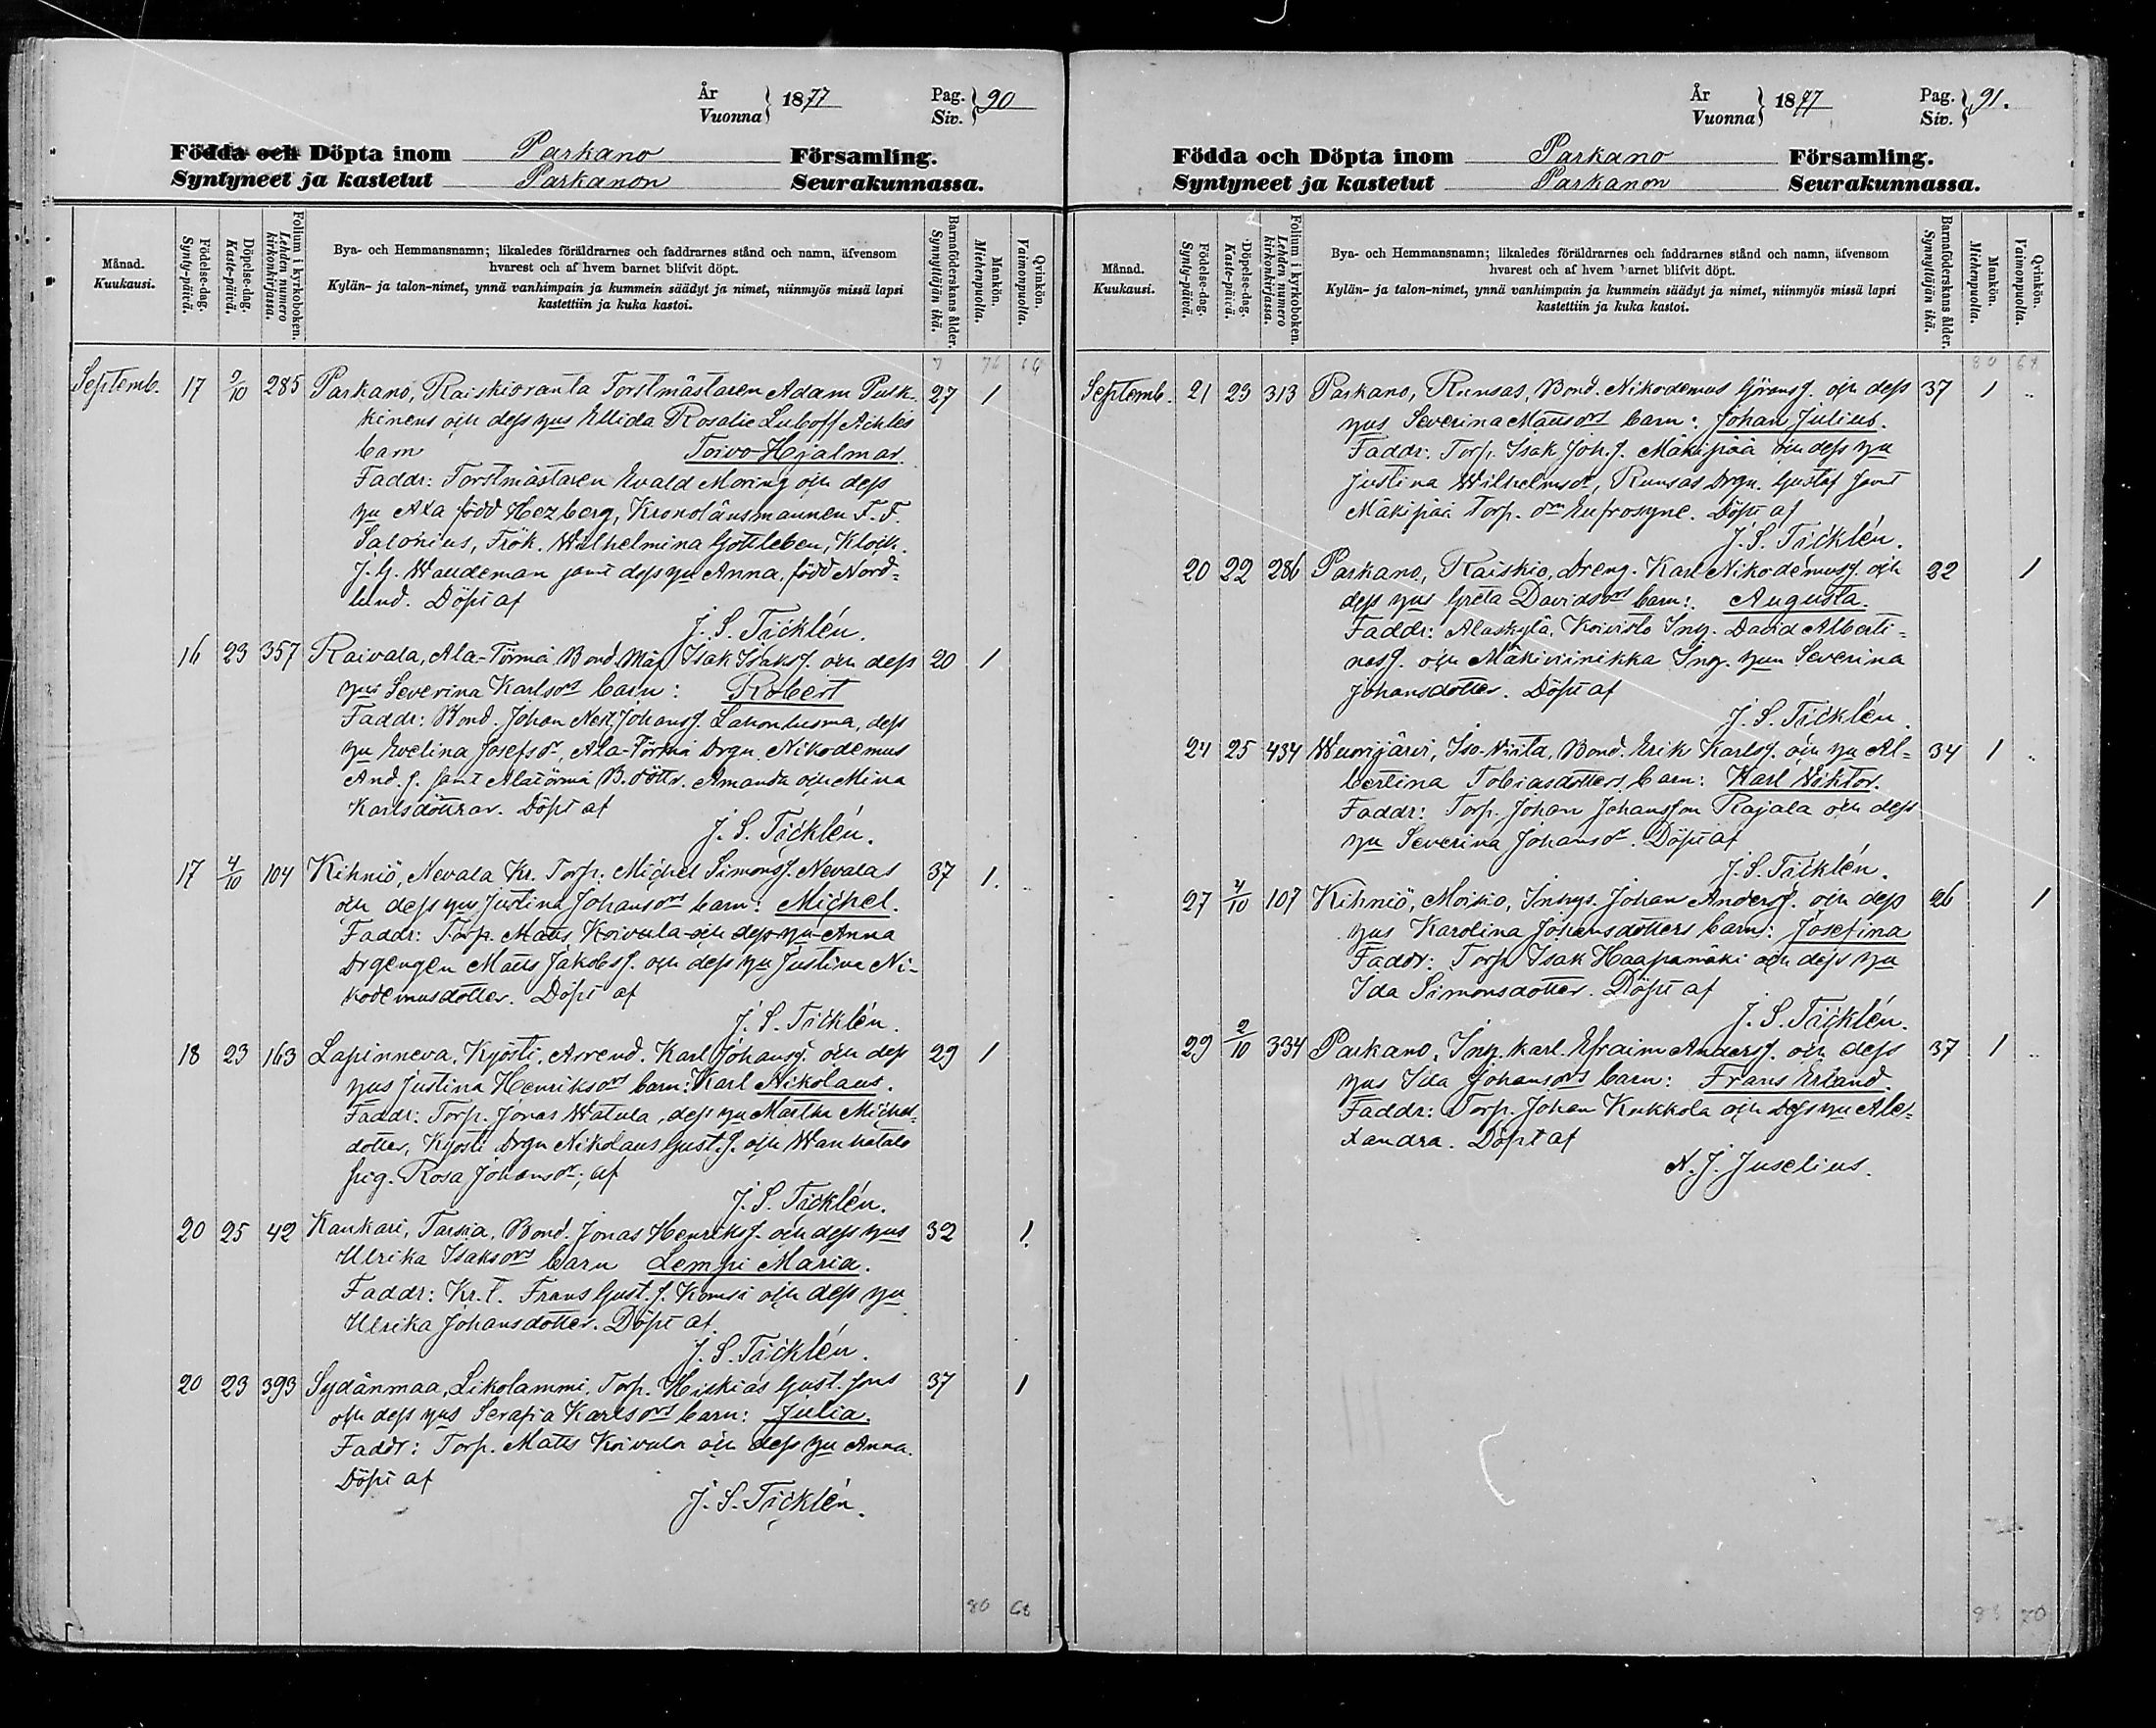 År
Vuonna } 1877
Pag.
Siv. } 90
Födda och Döpta inom Parkano Församling.
Syntyneet ja kastetut Parkanon Seurakunnassa.
Månad.
Kuukausi.
Födelse-dag.
Synty-päivä.
Döpelse-dag.
Kaste-päivä.
Folium i kyrkoboken.
Lehden numero
kirkonkirjassa.
Bya- och Hemmansnamn; likaledes föräldrarnes och faddrarnes stånd och namn, äfvensom
hvarest och af hvem barnet blifvit döpt.
Kylän- ja talon-nimet, ynnä vanhimpain ja kummein säädyt ja nimet, niinmyös missä lapsi
kastettiin ja kuka kastoi.
Barnaföderskans ålder.
Synnyttäjän ikä.
Mankön.
Miehenpuolla.
Qvinkön.
Vaimonpuolla.
Septemb. 17 2/10 285 Parkano, Raiskioranta Forstmästaren Adam Pusk- 27 1
kinens och dess hus Ellida Rosalie Luboff Achtés
barn Toivo Hjalmar.
Faddr: Forstmästaren Evald Moring och dess
hu Axa född Hezberg, Kronolänsmannen F. F.
Salonius, Frök. Wilhelmina Gottleben, Klock.
J. G. Wandeman samt dess hu Anna, född Nord-
lund. Döpt af
J. S. Täcklén.
16 23 357 Raivala, Ala-Törmä Bond. Måg Isak Isakss. och dess 20 1
hus Severina Karlsdrs barn: Robert
Faddr: Bond. Johan Nest. Johanss. Lahonluoma, dess
hu Evelina Josefsdr, Ala-Törmä Drgn. Nikodemus
And. s. samt Alatörmä B. döttr. Amanda och Mina
Karlsdöttrar. Döpt af
J. S. Täcklén.
17 4/10 104 Kihniö, Nevala Kr. Torp. Michel Simonss. Nevalas 37 1.
och dess hus Justina Johansdrs barn: Michel.
Faddr: Torp. Matts Koivula och dess hu Anna
Drgengen Matts Jakobss. och dess hu Justina Ni-
kodemusdotter. Döpt af
J. S. Täcklén.
18 23 163 Lapinneva, Kyösti, Arrend. Karl Johanss. och dess 29 1
hus Justina Henriksdrs barn: Karl Nikolaus.
Faddr: Torp. Jonas Watula, dess hu Martha Michels-
dotter, Kyösti Drgn Nikolaus Gust. s. och Wanhatalo
pig. Rosa Johansdr; af
J. S. Täcklén.
20 25 42 Kankari, Tarsia, Bond. Jonas Henrikss. och dess hus 32 1.
Ulrika Isaksdrs barn Lempi Maria.
Faddr: Kr. T. Frans Gust. s. Komsi och dess hu
Ulrika Johansdotter. Döpt af
J. S. Täcklén.
20 23 393 Sydänmaa, Likolammi, Torp. Hiskias Gust. sons 37 1
och dess hus Serafia Karlsdrs barn: Julia.
Faddr: Torp. Matts Koivula och dess hu Anna.
Döpt af
J. S. Täcklén.
80 68
År
Vuonna } 1877
Pag.
Siv. } 91.
Födda och Döpta inom Parkano Församling.
Syntyneet ja kastetut Parkanon Seurakunnassa.
Månad.
Kuukausi.
Födelse-dag.
Synty-päivä.
Döpelse-dag.
Kaste-päivä.
Folium i kyrkoboken.
Lehden numero
kirkonkirjassa.
Bya- och Hemmansnamn; likaledes föräldrarnes och faddrarnes stånd och namn, äfvensom
hvarest och af hvem barnet blifvit döpt.
Kylän- ja talon-nimet, ynnä vanhimpain ja kummein säädyt ja nimet, niinmyös missä lapsi
kastettiin ja kuka kastoi.
Barnaföderskans ålder.
Synnyttäjän ikä.
Mankön.
Miehenpuolla.
Qvinkön.
Vaimonpuolla.
80 68
Septemb. 21 23 313 Parkano, Runsas, Bond. Nikodemus Göranss. och dess 37 1
hus Severina Mattsdrs barn: Johan Julius.
Faddr: Torp. Isak Joh. s. Mäkipää och dess hu
Justina Wilhelmsdr, Runsas Drgn. Gustaf samt
Mäkipää Torp. drn Eufrosyne. Döpt af
J. S. Täcklén.
20 22 286 Parkano, Raiskio, Dreng. Karl Nikodemuss. och 22 1
dess hus Greta Davidsdrs barn: Augusta.
Faddr: Alaskylä, Koivisto Ing. David Alberti-
nass. och Mäkiviinikka Ing. hun Severina
Johansdotter. Döpt af
J. S. Täcklén.
24 25 434 Wuorijärvi, Iso-Wiita, Bond. Erik Karlss. och hu Al- 34 1
bertina Tobiasdotters barn: Karl Wiktor.
Faddr: Torp. Johan Johansson Rajala och dess
hu Severina Johansdr. Döpt af
J. S. Täcklén.
27 4/10 107 Kihniö, Moisio, Inhys. Johan Anderss. och dess 26 1
hus Karolina Johansdotters barn: Josefina
Faddr: Torp. Isak Haapamäki och dess hu
Ida Simonsdotter. Döpt af
J. S. Täcklén.
29 2/10 334 Parkano, Ing. karl. Efraim Anderss. och dess 37 1
hus Ida Johansdrs barn: Frans Erland.
Faddr: Torp. Johan Kukkola och Dess hu Ale-
xandra. Döpt af
N. J. Juselius.
83 70